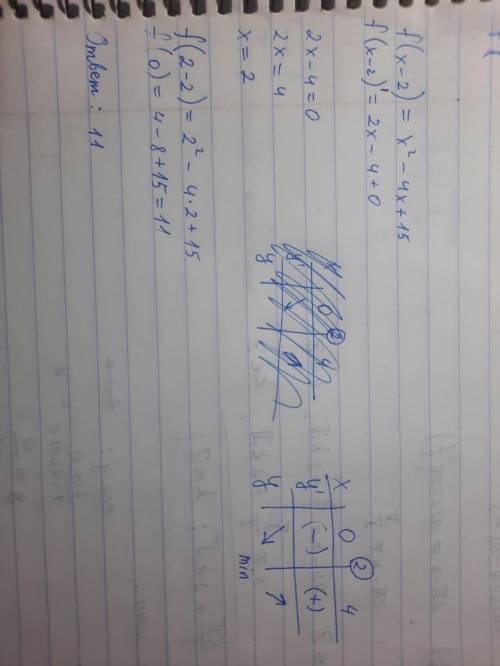 f(x-2) = x² - 4x + 15
f(x-2)' = 2x - 4 + 0
2x - 4 = 0
2x = 4
x = 2
x 0 2 4
y' (-) (+)
y ↘ ↗
min
f(2-2) = 2² - 4·2 + 15
f(0) = 4 - 8 + 15 = 11
Ответ: 11